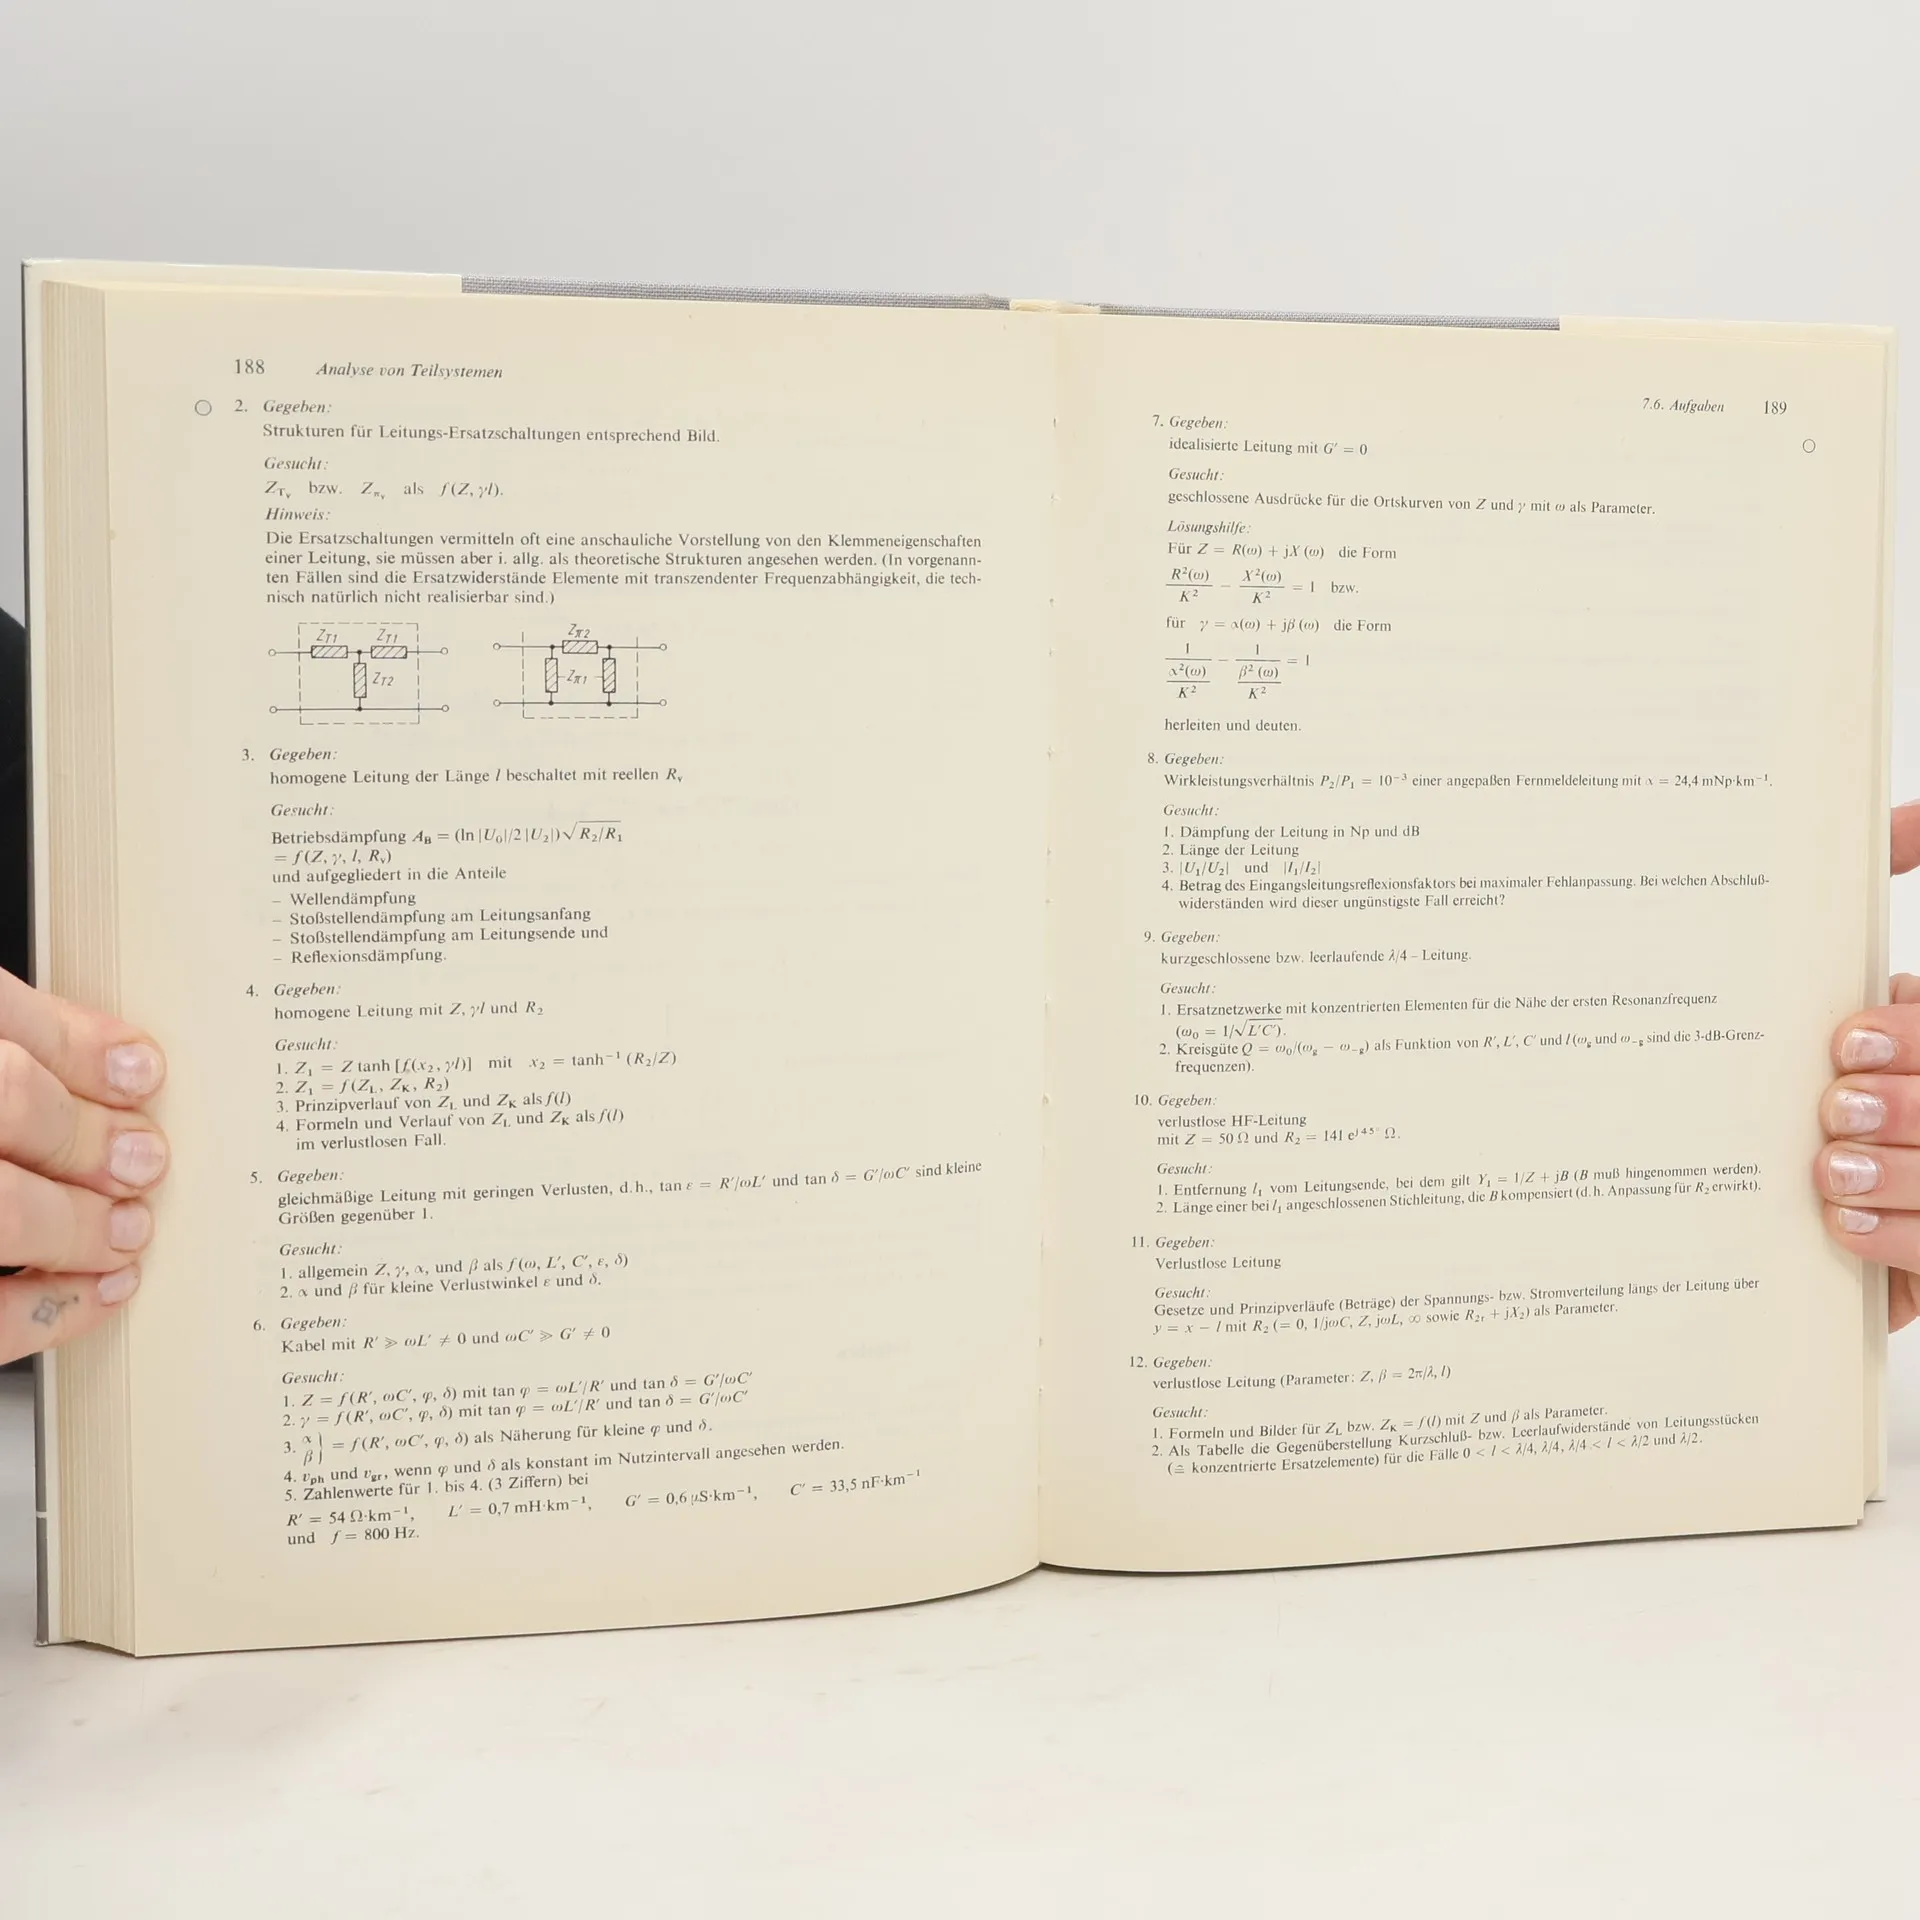 188 Analyse von Teilsystemen
2. Gegeben:
Strukturen für Leitungs-Ersatzschaltungen entsprechend Bild.
Gesucht:
Z_Tν bzw. Z_πν als f(Z, γl).
Hinweis:
Die Ersatzschaltungen vermitteln oft eine anschauliche Vorstellung von den Klemmeneigenschaften
einer Leitung, sie müssen aber i. allg. als theoretische Strukturen angesehen werden. (In vorgenann-
ten Fällen sind die Ersatzwiderstände Elemente mit transzendenter Frequenzabhängigkeit, die tech-
nisch natürlich nicht realisierbar sind.)
Z_T1 Z_T1 Z_π2
Z_T2 Z_π1
3. Gegeben:
homogene Leitung der Länge l beschaltet mit reellen R_ν
Gesucht:
Betriebsdämpfung A_B = (ln |U₀|/2 |U₂|) √R₂/R₁
= f(Z, γ, l, R_ν)
und aufgegliedert in die Anteile
– Wellendämpfung
– Stoßstellendämpfung am Leitungsanfang
– Stoßstellendämpfung am Leitungsende und
– Reflexionsdämpfung.
4. Gegeben:
homogene Leitung mit Z, γl und R₂
Gesucht:
1. Z₁ = Z tanh [f(x₂, γl)] mit x₂ = tanh⁻¹ (R₂/Z)
2. Z₁ = f(Z_L, Z_K, R₂)
3. Prinzipverlauf von Z_L und Z_K als f(l)
4. Formeln und Verlauf von Z_L und Z_K als f(l)
im verlustlosen Fall.
5. Gegeben:
gleichmäßige Leitung mit geringen Verlusten, d. h., tan ε = R′/ωL′ und tan δ = G′/ωC′ sind kleine
Größen gegenüber 1.
Gesucht:
1. allgemein Z, γ, α, und β als f(ω, L′, C′, ε, δ)
2. α und β für kleine Verlustwinkel ε und δ.
6. Gegeben:
Kabel mit R′ ≫ ωL′ ≠ 0 und ωC′ ≫ G′ ≠ 0
Gesucht:
1. Z = f(R′, ωC′, φ, δ) mit tan φ = ωL′/R′ und tan δ = G′/ωC′
2. γ = f(R′, ωC′, φ, δ) mit tan φ = ωL′/R′ und tan δ = G′/ωC′
3. α β } = f(R′, ωC′, φ, δ) als Näherung für kleine φ und δ.
4. v_ph und v_gr, wenn φ und δ als konstant im Nutzintervall angesehen werden.
5. Zahlenwerte für 1. bis 4. (3 Ziffern) bei
R′ = 54 Ω·km⁻¹, L′ = 0,7 mH·km⁻¹, G′ = 0,6 μS·km⁻¹, C′ = 33,5 nF·km⁻¹
und f = 800 Hz.
7.6. Aufgaben 189
7. Gegeben:
idealisierte Leitung mit G′ = 0
Gesucht:
geschlossene Ausdrücke für die Ortskurven von Z und γ mit ω als Parameter.
Lösungshilfe:
Für Z = R(ω) + jX (ω) die Form
R²(ω)/K² − X²(ω)/K² = 1 bzw.
für γ = α(ω) + jβ (ω) die Form
1/(α²(ω)/K²) − 1/(β² (ω)/K²) = 1
herleiten und deuten.
8. Gegeben:
Wirkleistungsverhältnis P₂/P₁ = 10⁻³ einer angepaßen Fernmeldeleitung mit α = 24,4 mNp·km⁻¹.
Gesucht:
1. Dämpfung der Leitung in Np und dB
2. Länge der Leitung
3. |U₁/U₂| und |I₁/I₂|
4. Betrag des Eingangsleitungsreflexionsfaktors bei maximaler Fehlanpassung. Bei welchen Abschluß-
widerständen wird dieser ungünstigste Fall erreicht?
9. Gegeben:
kurzgeschlossene bzw. leerlaufende λ/4 – Leitung.
Gesucht:
1. Ersatznetzwerke mit konzentrierten Elementen für die Nähe der ersten Resonanzfrequenz
(ω₀ = 1/√L′C′).
2. Kreisgüte Q = ω₀/(ω_g − ω_−g) als Funktion von R′, L′, C′ und l (ω_g und ω_−g sind die 3-dB-Grenz-
frequenzen).
10. Gegeben:
verlustlose HF-Leitung
mit Z = 50 Ω und R₂ = 141 e^j45° Ω.
Gesucht:
1. Entfernung l₁ vom Leitungsende, bei dem gilt Y₁ = 1/Z + jB (B muß hingenommen werden).
2. Länge einer bei l₁ angeschlossenen Stichleitung, die B kompensiert (d. h. Anpassung für R₂ erwirkt).
11. Gegeben:
Verlustlose Leitung
Gesucht:
Gesetze und Prinzipverläufe (Beträge) der Spannungs- bzw. Stromverteilung längs der Leitung über
y = x − l mit R₂ (= 0, 1/jωC, Z, jωL, ∞ sowie R₂r + jX₂) als Parameter.
12. Gegeben:
verlustlose Leitung (Parameter: Z, β = 2π/λ, l)
Gesucht:
1. Formeln und Bilder für Z_L bzw. Z_K = f(l) mit Z und β als Parameter.
2. Als Tabelle die Gegenüberstellung Kurzschluß- bzw. Leerlaufwiderstände von Leitungsstücken
(≙ konzentrierte Ersatzelemente) für die Fälle 0 < l < λ/4, λ/4, λ/4 < l < λ/2 und λ/2.